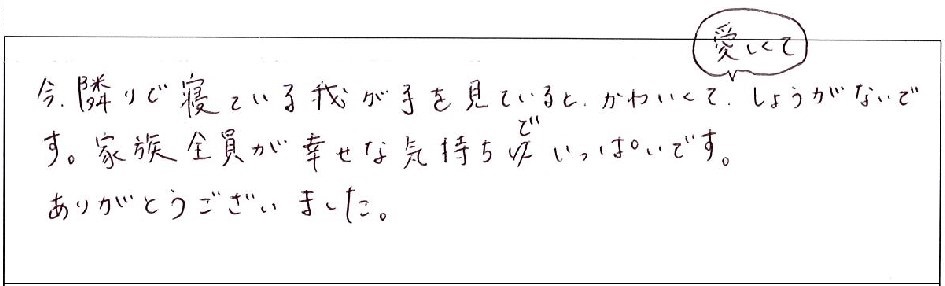 愛しくて
今、隣りで寝ている我が子を見ていると、かわいくて、しょうがないで
す。家族全員が幸せな気持ちでいっぱいです。
ありがとうございました。